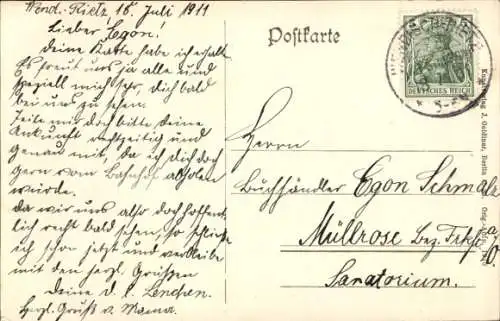 Wend.-Rietz, 18. Juli 1911
Lieber Egon!
Deine Karte habe ich erhalt.
Es freut uns ja alle und
speziell mich sehr, Dich bald
bei uns zu sehen.
Teile mir doch bitte Deine
Ankunft rechtzeitig und
genau mit, da ich Dich doch
gern vom Bahnhof abholen
würde.
Da wir uns also doch hoffent-
lich recht bald sehen, so schließe
ich schon jetzt und verbleibe
mit den herzl. Grüßen
Deine d. l. Lenchen.
Herzl. Gruß v. Mama.
Postkarte
DEUTSCHES REICH
Herrn
Buchhändler Egon Schmalz
Müllrose Bez. Frkf.
a/O.
Sanatorium.
J. Goldiner, Berlin